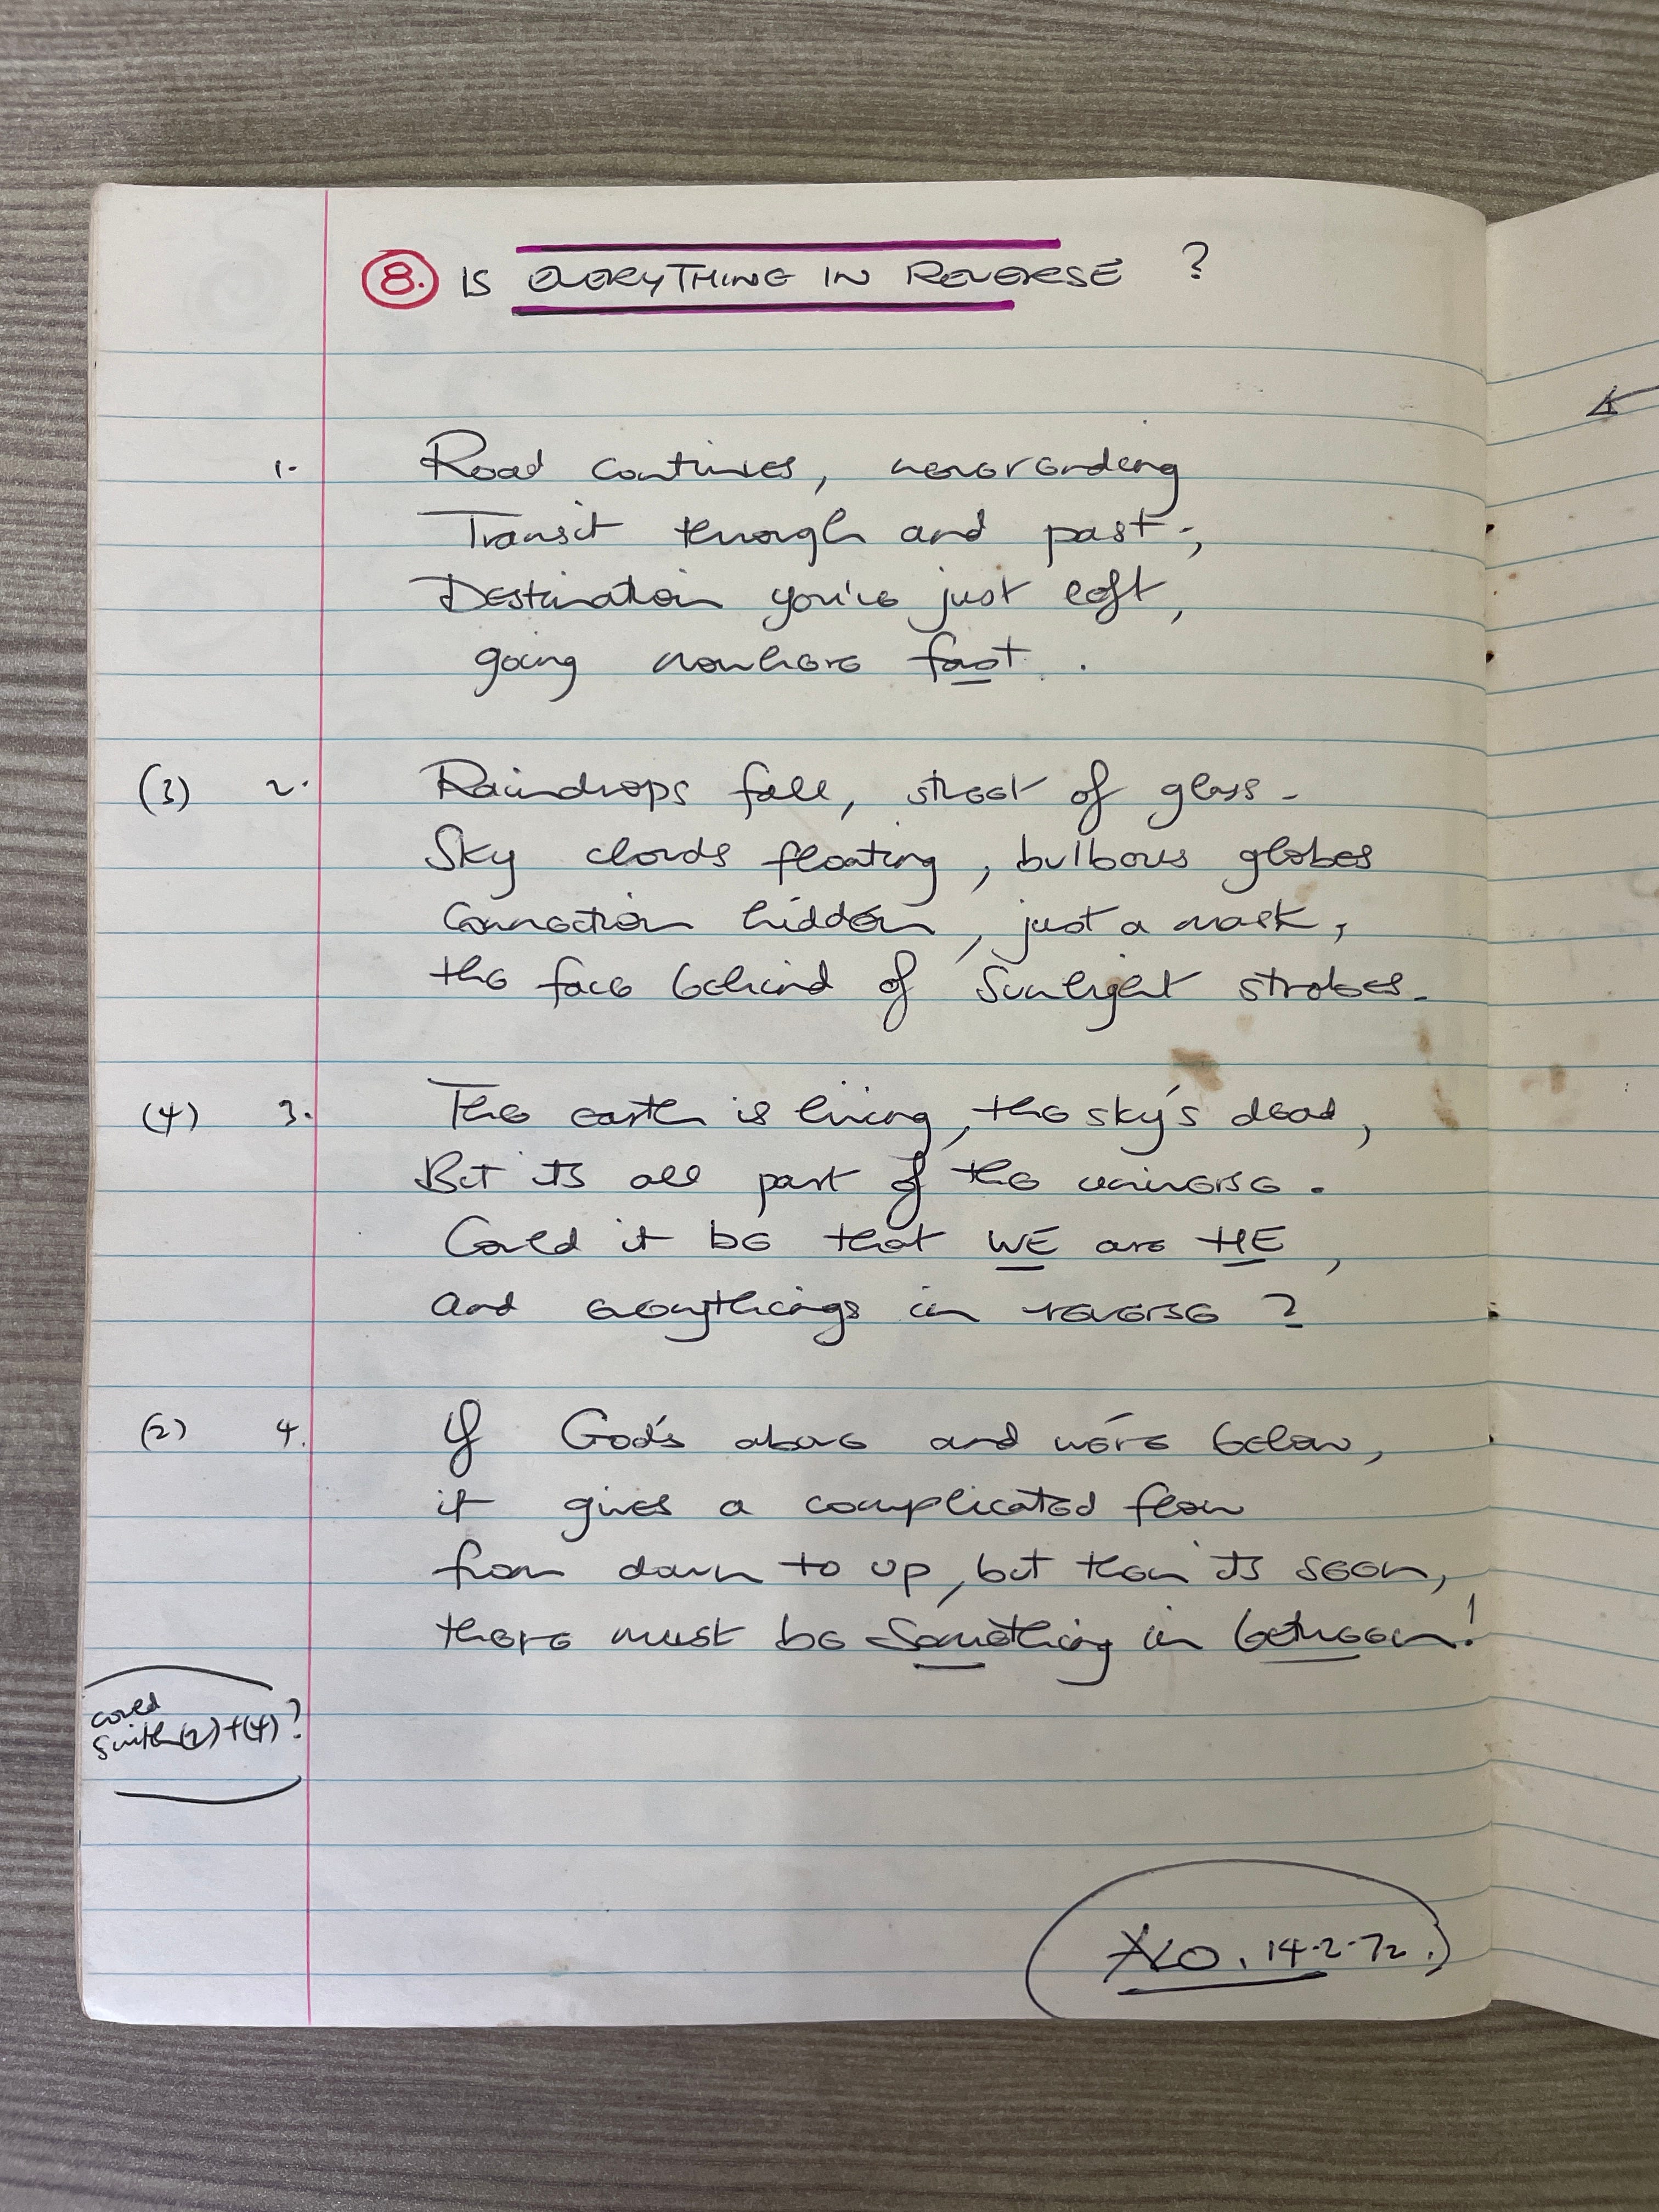 8. IS EVERYTHING IN REVERSE ?
1. Road continues, never ending
Transit through and past,
Destination you've just left,
going nowhere fast.
(3) 2. Raindrops fall, street of glass-
Sky clouds floating, bulbous globes
Connection hidden, just a mask,
the face behind of Sunlight strobes.
(4) 3. The earth is living, the sky's dead,
But its all part of the universe.
Could it be that WE are HE,
and everythings in reverse ?
(2) 4. If God's above and we're below,
it gives a complicated flow
from down to up, but then its seen,
there must be Something in between!
could
switch (2) + (4) ?
14.2.72.